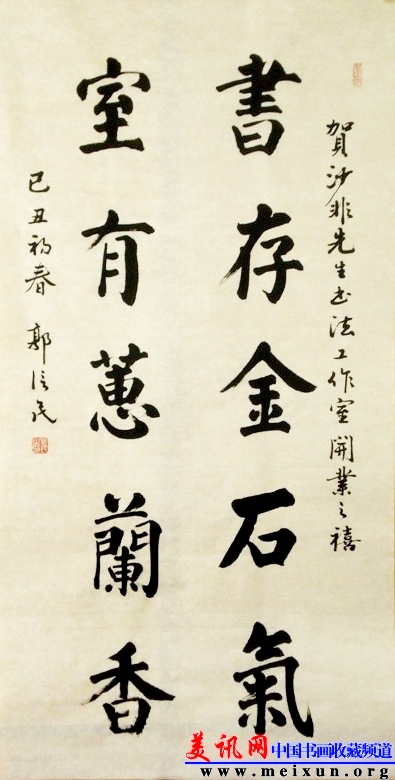 賀沙非先生书法工作室開業之禧
書存金石氣
室有蕙蘭香
己丑初春 郭信民
美讯网中国书画收藏频道
www.meixun.org